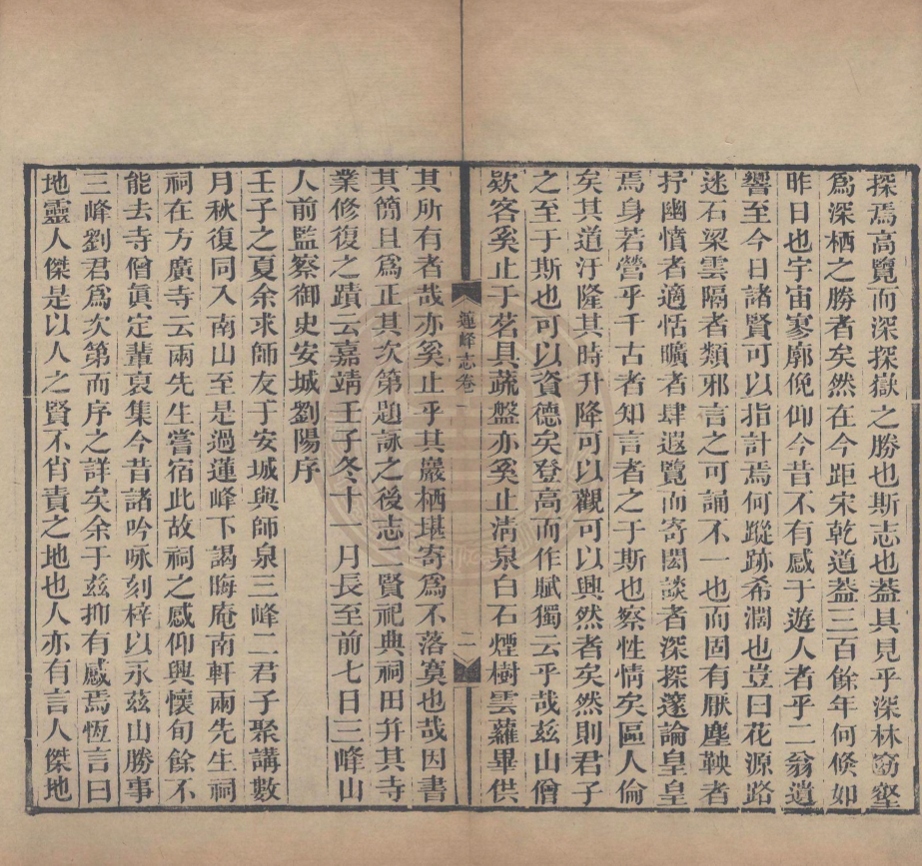 探焉高覽而深探嶽之勝也斯志也蓋具見乎深林窈壑
爲深栖之勝者矣然在今距宋乾道蓋三百餘年何倐如
昨日也宇宙寥廓俛仰今昔不有感于遊人者乎二翁遺
響至今日諸賢可以指計焉何蹤跡希濶也豈曰花源路
迷石梁雲隔者類邪言之可誦不一也而固有厭塵鞅者
抒幽憤者適恬曠者肆遐覽而寄閎談者深探邃論皇皇
焉身若營乎千古者知言者之于斯也察性情矣區人倫
矣其道汙隆其時升降可以觀可以興然者矣然則君子
之至于斯也可以資德矣登高而作賦獨云乎哉茲山僧
欵客奚止于茗具蔬盤亦奚止淸泉白石煙樹雲蘿畢供
蓮峰志卷一
二
其所有者哉亦奚止乎其巖栖堪寄爲不落寞也哉因書
其簡且爲正其次第題詠之後志二賢祀典祠田并其寺
業修復之蹟云嘉靖壬子冬十一月長至前七日三峰山
人前監察御史安城劉陽序
壬子之夏余求師友于安城與師泉三峰二君子聚講數
月秋復同入南山至是過蓮峰下謁晦庵南軒兩先生祠
祠在方廣寺云兩先生嘗宿此故祠之感仰興懷旬餘不
能去寺僧眞定輩裒集今昔諸吟咏刻梓以永茲山勝事
三峰劉君爲次第而序之詳矣余于茲抑有感焉恆言曰
地靈人傑是以人之賢不肖責之地也人亦有言人傑地